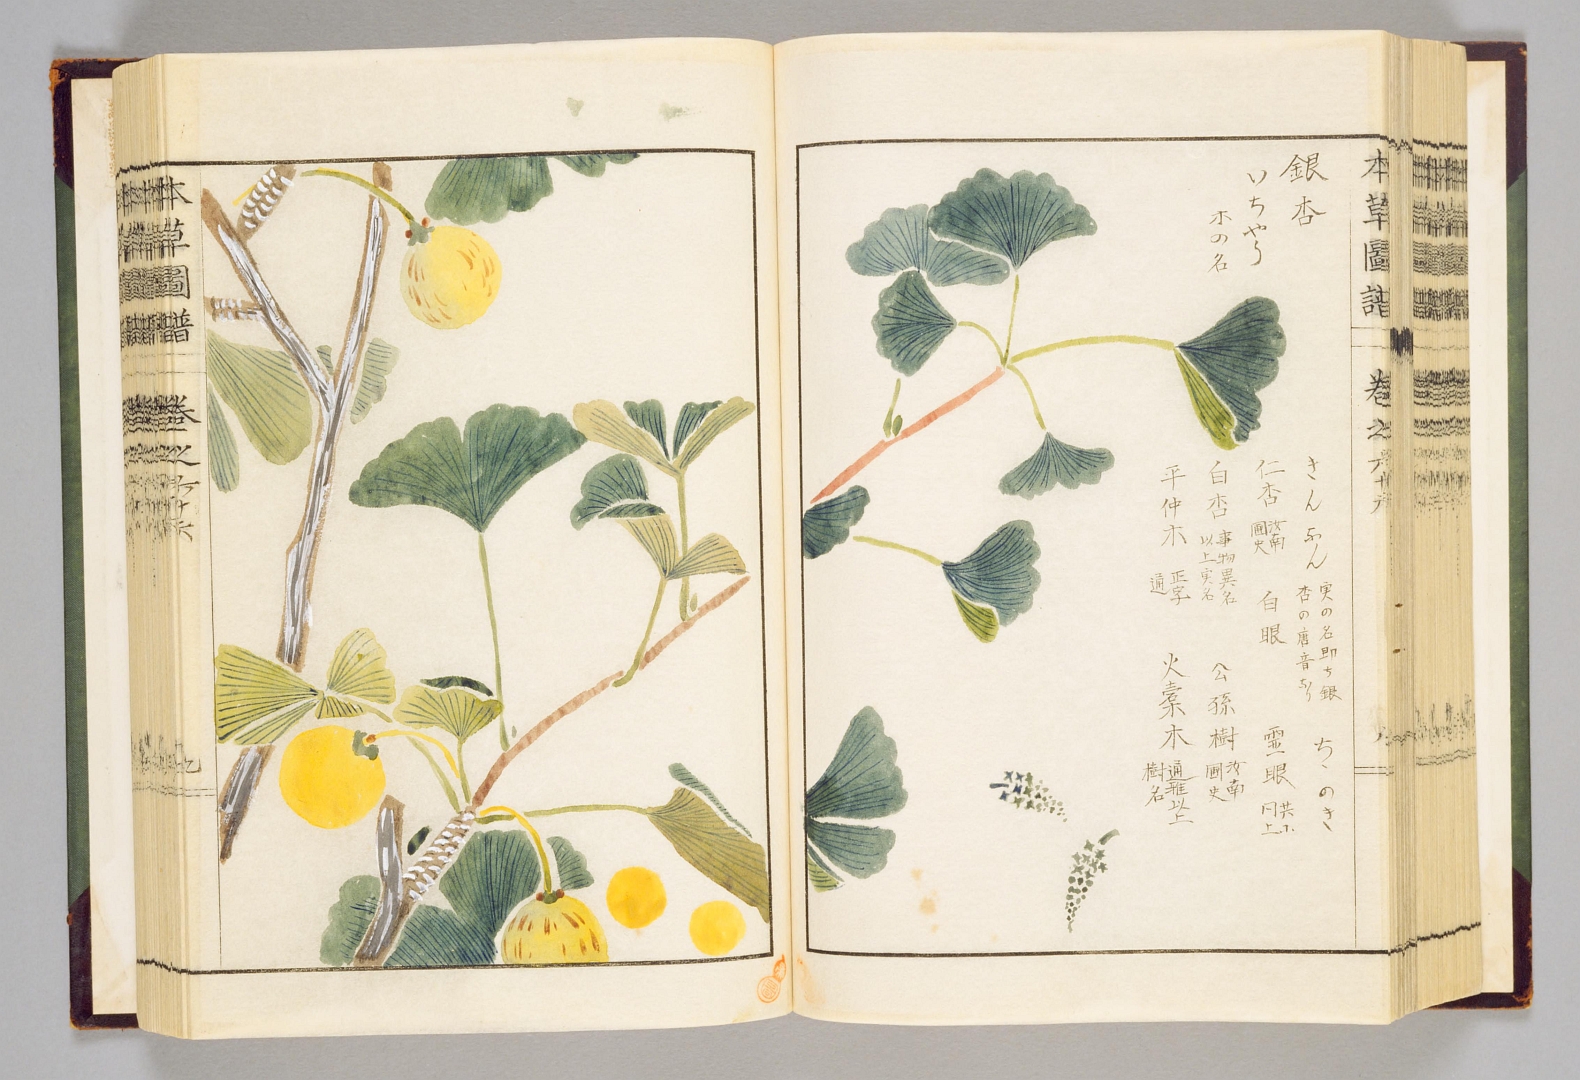 本草圖譜 卷之六十六
銀杏
いちやう
木の名
きんあん
実の名即ち銀
杏の唐音なり
ちゝのき
仁杏
汝南
圃史
白眼
霊眼
共ニ
同上
白杏
事物異名
以上実名
公孫樹
汝南
圃史
平仲木
正字
通
火槖木
通雅以上
樹名
本草圖譜 卷之六十六